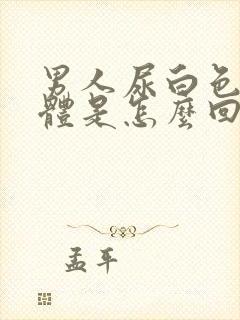 男人尿白色
體是怎麼回
孟平